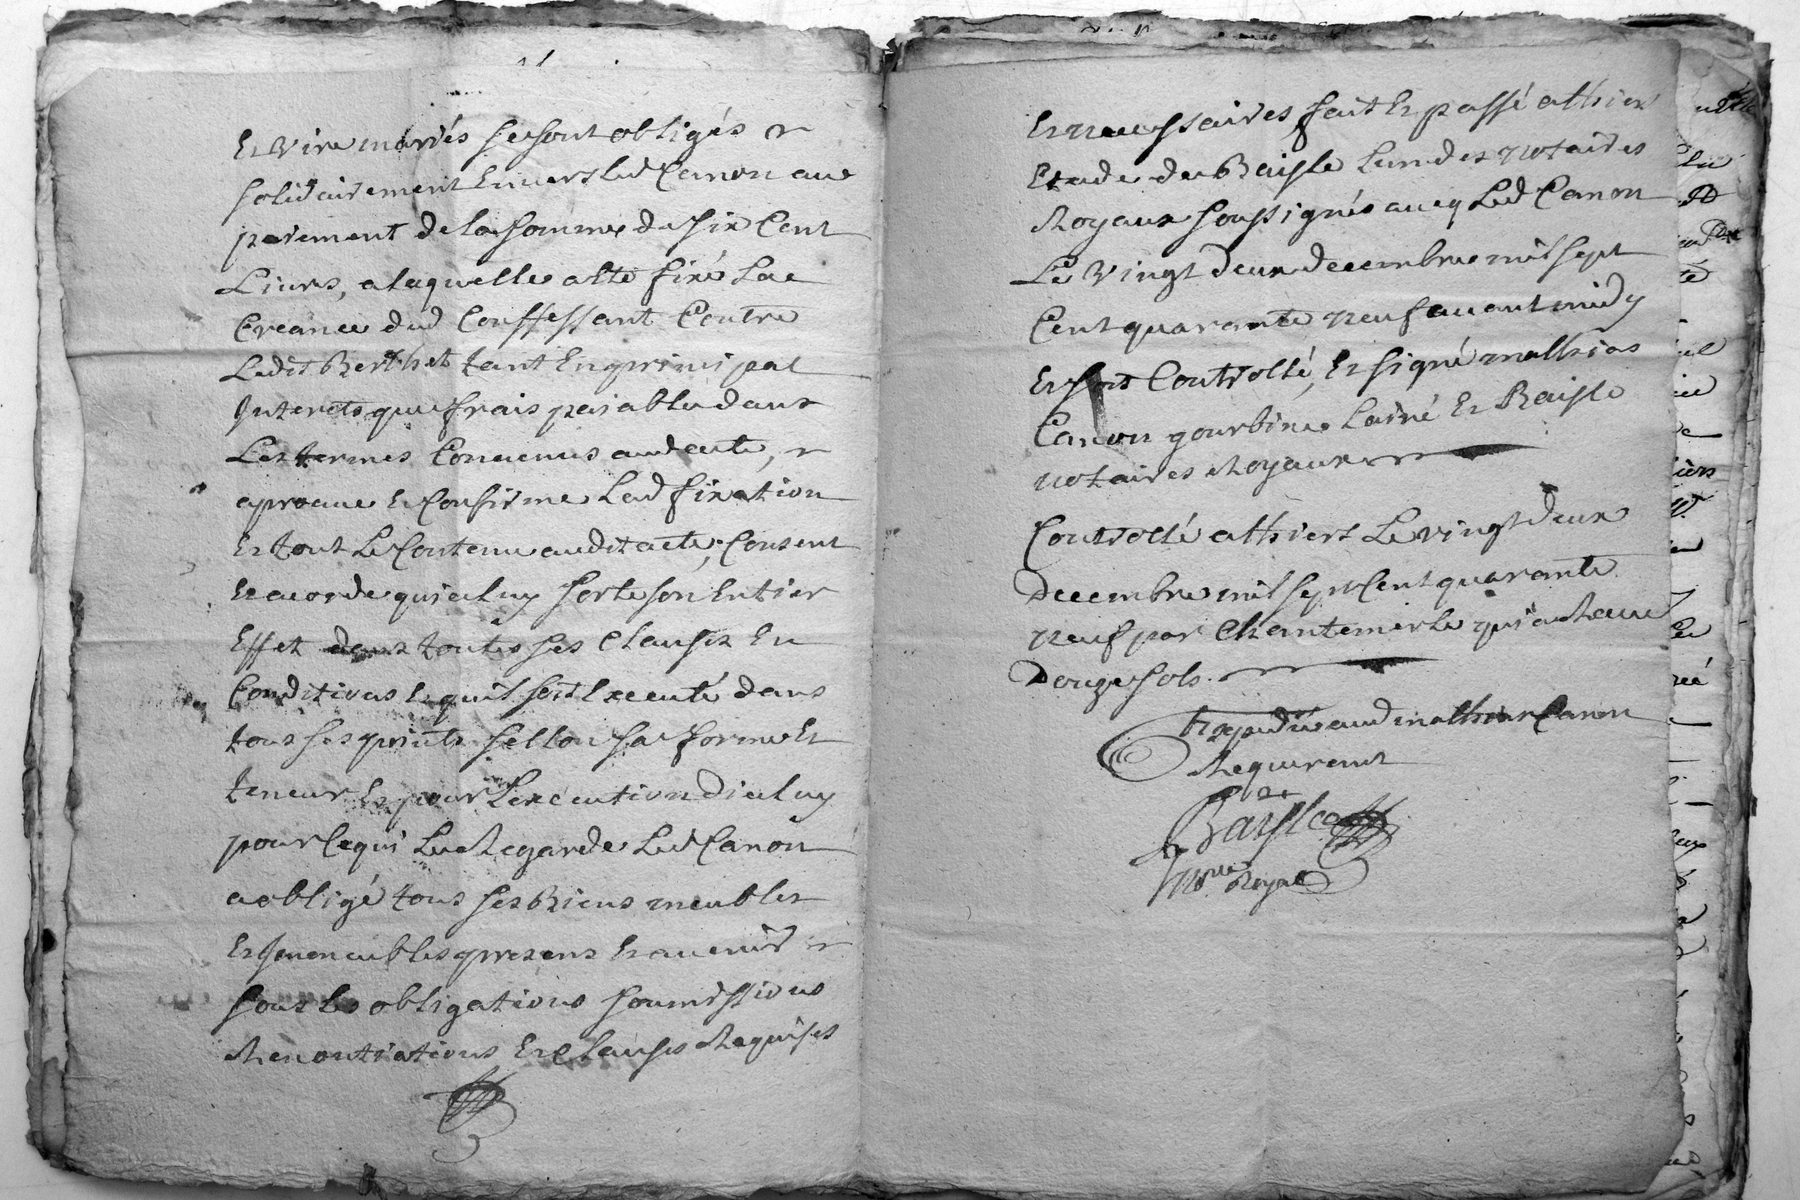 Et Vire mariés se sont obligés et
solidairement Envers led Canon au
paiement de la somme de six Cent
Livres, a laquelle a été fixé La
Creance dud Conffessant Contre
Ledit Berthet tant En principal
Interets que frais paiable dans
Les termes Convenus aud acte, et
aprouve Et Confirme Lad fixation
Et tout Le Contenu audit acte, Consent
Et acorde qu'iceluy sorte son Entier
Effet dans toutes ses Clauses Et
Conditions Et quil soit Executé dans
tous ses points sellon sa forme Et
teneur Et pour L'execution d'iceluy
pour Ce qui Le Regarde Led Canon
a obligé tous ses Biens meubles
Et Immeubles presens Et avenir et
sous les obligations soumissions
Renontiations Et Clauses Requises
Et necessaires fait Et passé a thiers
Etude de Baisle Lun des notaires
Royaux soussignés aveq Led Canon
Le Vingt deux decembre mil sept
Cent quarante neuf avant midy
Et sera Controllé, Et signé mathias
Canon gourbine Lainé Et Baisle
notaires Royaux
Controllé a thiers Le vingt deux
Decembre mil sept Cent quarante
neuf par Chantemerle qui a Receu
Douze sols.
Expedié aud mathias Canon
Requerant
Baisle
nore Royal